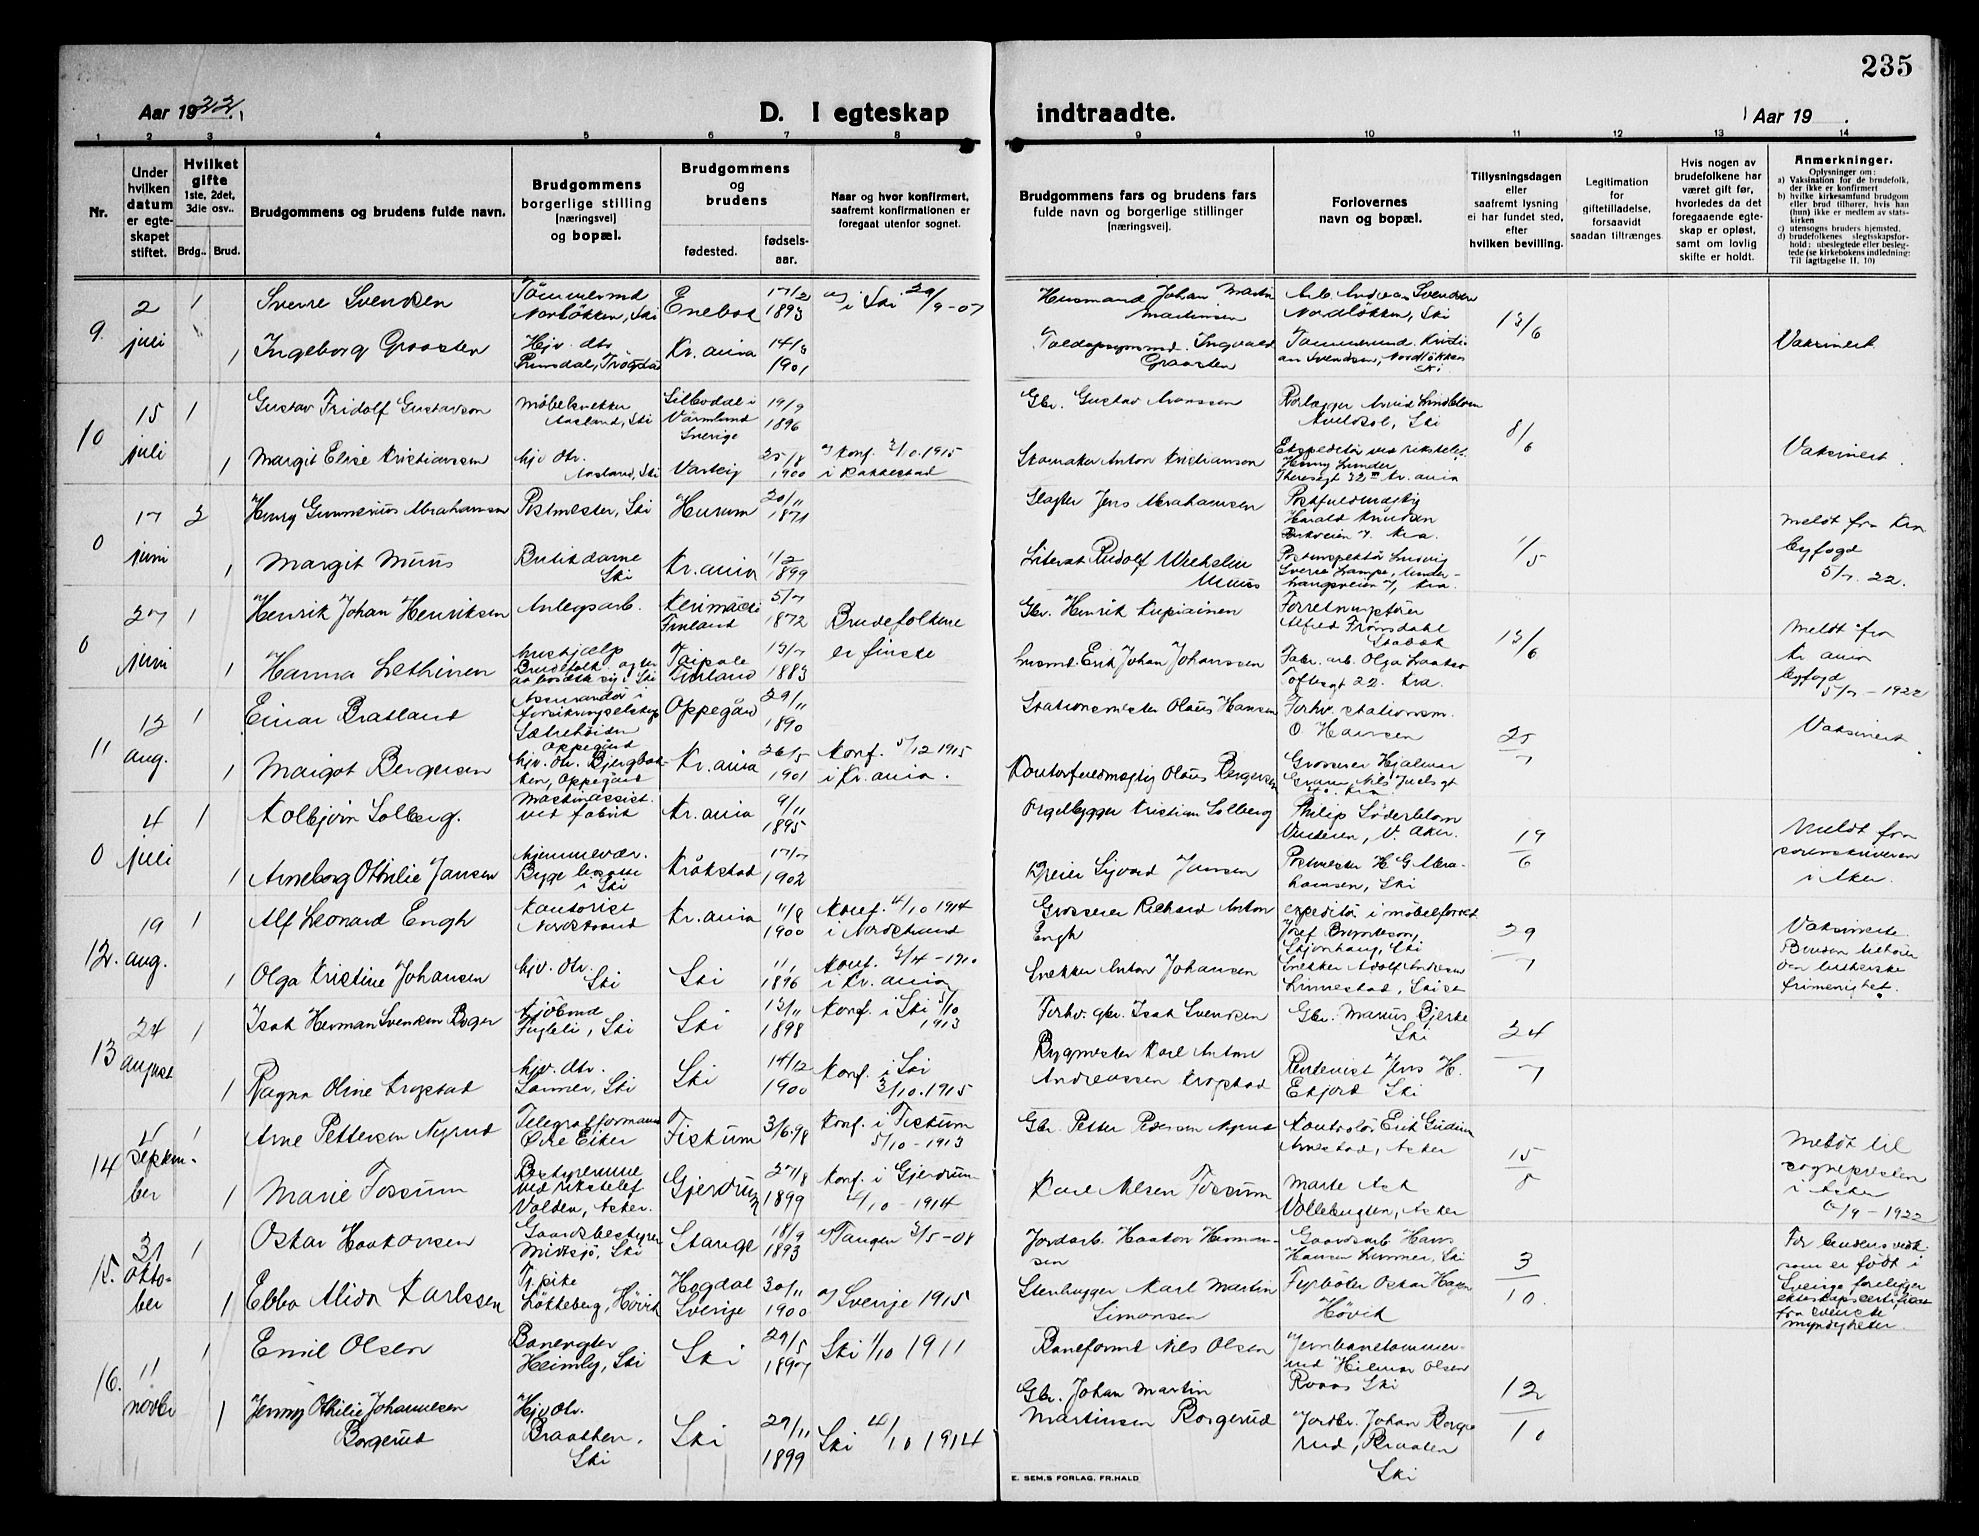 235
Aar 1922.
D. I egteskap indtraadte.
Aar 19 .
1 2 3 4 5 6 7 8 9 10 11 12 13 14
Nr.
Under hvilken datum er egteskapet stiftet.
Hvilket gifte 1ste, 2det, 3die osv..
Brdg.. Brud.
Brudgommens og brudens fulde navn.
Brudgommens borgerlige stilling (næringsvei) og bopæl.
Brudgommens og brudens
fødested. fødselsaar.
Naar og hvor konfirmert, saafremt konfirmationen er foregaat utenfor sognet.
Brudgommens fars og brudens fars fulde navn og borgerlige stillinger (næringsvei).
Forlovernes navn og bopæl.
Tillysningsdagen eller saafremt lysning ei har fundet sted, efter hvilken bevilling.
Legitimation for giftetilladelse, forsaavidt saadan tiltrænges.
Hvis nogen av brudefolkene har været gift før, hvorledes da det foregaaende egteskap er opløst, samt om lovlig skifte er holdt.
Anmerkninger.
Oplysninger om:
a) Vaksination for de brudefolk, der ikke er konfirmert
b) hvilke kirkesamfund brudgom eller brud tilhører, hvis han (hun) ikke er medlem av statskirken
c) utensogns bruders hjemsted.
d) brudefolkenes slegtsskapsforhold: ubeslegtede eller beslegtede (se kirkebokens indledning: Til iagttagelse II. 10)
9. 2 juli 1 Sverre Svendsen Tømmermd Nordløkken, Ski Enebak 17/2 1893 i Ski 29/9-07 Husmand Johan Martin Martinsen Arb. Andreas Svendsen Nordløkken, Ski 13/6
1 Ingeborg Graasten Hjv. dtr. Kr.ania 14/3 1901 Ingvald Graasten Tømmermd Kristian Svendsen, Nordløkken Ski Vaksinert
10 15 juli 1 Gustav Fridolf Gustavson Møbelsnekker Aasland, Ski Sillbodal i Värmland Sverige 19/9 1896 Gbr. Gustav Avenssen Arvid Lindblom Ski 8/6
1 Margit Elise Kristiansen hjv. dtr. Aasland, Ski Varteig 25/8 1900 konf. 3/10 1915 i Rakkestad Skomaker Anton Kristiansen Ekspeditør ved rikstelef. Henny Lunder Theresegt 32 III Kr.ania Vaksinert.
0 17 juni 2 Henry Gunnerius Abrahamsen Postmester, Ski Hurum 20/11 1871 Slagter Jens Abrahamsen Postfuldmægtig Harald Knudsen Kra. 11/5 Meldt fra Kra byfogd 5/7. 22.
1 Margit Muus Butikdame Ski Kr.ania 11/2 1899 Literat Rudolf Wilhelm Muus Postinspektør Ludvig Sverre Lampe, Underhaugsveien Kra
0 27 juni 1 Henrik Johan Henriksen Anlegsarb. Kerimäki Finland 5/7 1872 Brudefolkene er finske Gbr. Henrik Kupiainen Forretningsfører Alfred Stabæk 13/6 Meldt fra Kr.ania byfogd 5/7-1922
1 Hanna Lethinen hushjælp Brudefolk. agter at bosætte sig i Ski Taipale Finland 13/7 1883 husmd. Erik Johan Johanssen Fabr. arb. Olga Toftesgt 22. Kra.
11 12 aug. 1 Einar Bratland Assurandør i forsikringselskap Sætrehøiden Oppegård Oppegård 29/11 1890 Stationsmester Olaus Hansen Forhv. stationsm. O Hansen 25/7 Vaksinert.
1 Margot Bergersen hjv. dtr. Bjergbakken, Oppegård Kr.ania 26/5 1901 Konf. 5/12 1915 i Kr.ania. Kontorfuldmægtig Olaus Bergersen Grosserer Hjalmar Gram, Nils Juelsgt Kra
0 4 juli 1 Kolbjørn Solberg. Maskinassist. ved fabrik Kr.ania 9/11 1895 Orgelbygger Kristian Solberg Philip Söderblom Vinderen, V. Aker. 19/6 Meldt fra sorenskriveren i Aker.
1 Arneborg Othilie Jansen hjemmevær. i Ski Kråkstad 17/7 1902 Dreier Sigvard Jansen Postmester H. G. Abrahamsen, Ski
12. 19 aug. 1 Alf Leonard Engh Kontorist Nordstrand Kr.ania 11/8 1900 Konf. 4/10 1914 i Nordstrand Grosserer Richard Anton Engh expeditør i møbelforret. Josef Skjønhaug, Ski 29/7 Vaksinerte. Bruden tilhører den lutherske frimenighet.
1 Olga Kristine Johansen hjv. dtr. Ski Ski 1/1 1896 Konf. 3/4-1910 i Kr.ania Snekker Anton Johansen Snekker Adolf Andersen Ski st
13 24 august 1 Isak Herman Svenksen Boger Kjøbmd Fugleli, Ski Ski 13/11 1898 Konf. i Ski 5/10 1913 Forhv. gbr. Isak Svenksen Gbr. Marius Bjerke Ski 24/7
1 Ragna Oline Kropstad hjv. dtr. Ski Ski 14/12 1900 Konf. i Ski 3/10. 1915 Bygmester Karl Anton Andreassen Kropstad Rentenist Jens H. Ekjord Ski
14 4 September 1 Arne Pettersen Nyrud Telegrafformand Øvre Eiker Fiskum 3/6.98 Konf. i Fiskum 5/10-1913 Gbr. Petter Pedersen Nyrud Kontrolør Erik Gudim Arnestad, Asker 15/8 Meldt til sognepresten i Asker 6/9-1922
1 Marie Fossum Bestyrerinne ved rikstelef Valden, Asker. Gjerdrum 27/8 1899 Konf. i Gjerdrum 4/10-1914 Karl Nilsen Fossum Marte Ask Vollebugten, Asker
15. 31 oktober 1 Oskar Haakonsen Gaardsbestyrer Midtsjø, Ski Stange 18/9 1893 Tangen 3/5-08 Jordarb. Haakon Hermansen Gaardsarb Hans Hansen Ski 3/10. For brudens vedk. som er født i Sverige foreligger ekteskapscertifikat fra svenske myndigheter.
1 Ebba Alida Karlssen Tj.pike Løkkeberg, Høvik Hogdal Sverige 30/11 1900 Sverige 1915 Stenhugger Karl Martin Simonsen Fyrbøter Oskar Hagen Høvik
16. 11 novbr 1 Emil Olsen Banevogter Heimly, Ski Ski 29/5 1897 Ski 1/10 1911 Baneformd Nils Olsen Jernbanetømmermd Hilmar Olsen Roaas Ski 12/10
1 Jenny Othilie Johannesen Borgerud Hjv dtr. Braathen, Ski Ski 29/11 1899 Ski 4/10 1914 Gbr. Johan Martin Martinsen Borgerud Jordbr. Johan Borgerud, Braaten Ski
E. SEM,S FORLAG, FR.HALD